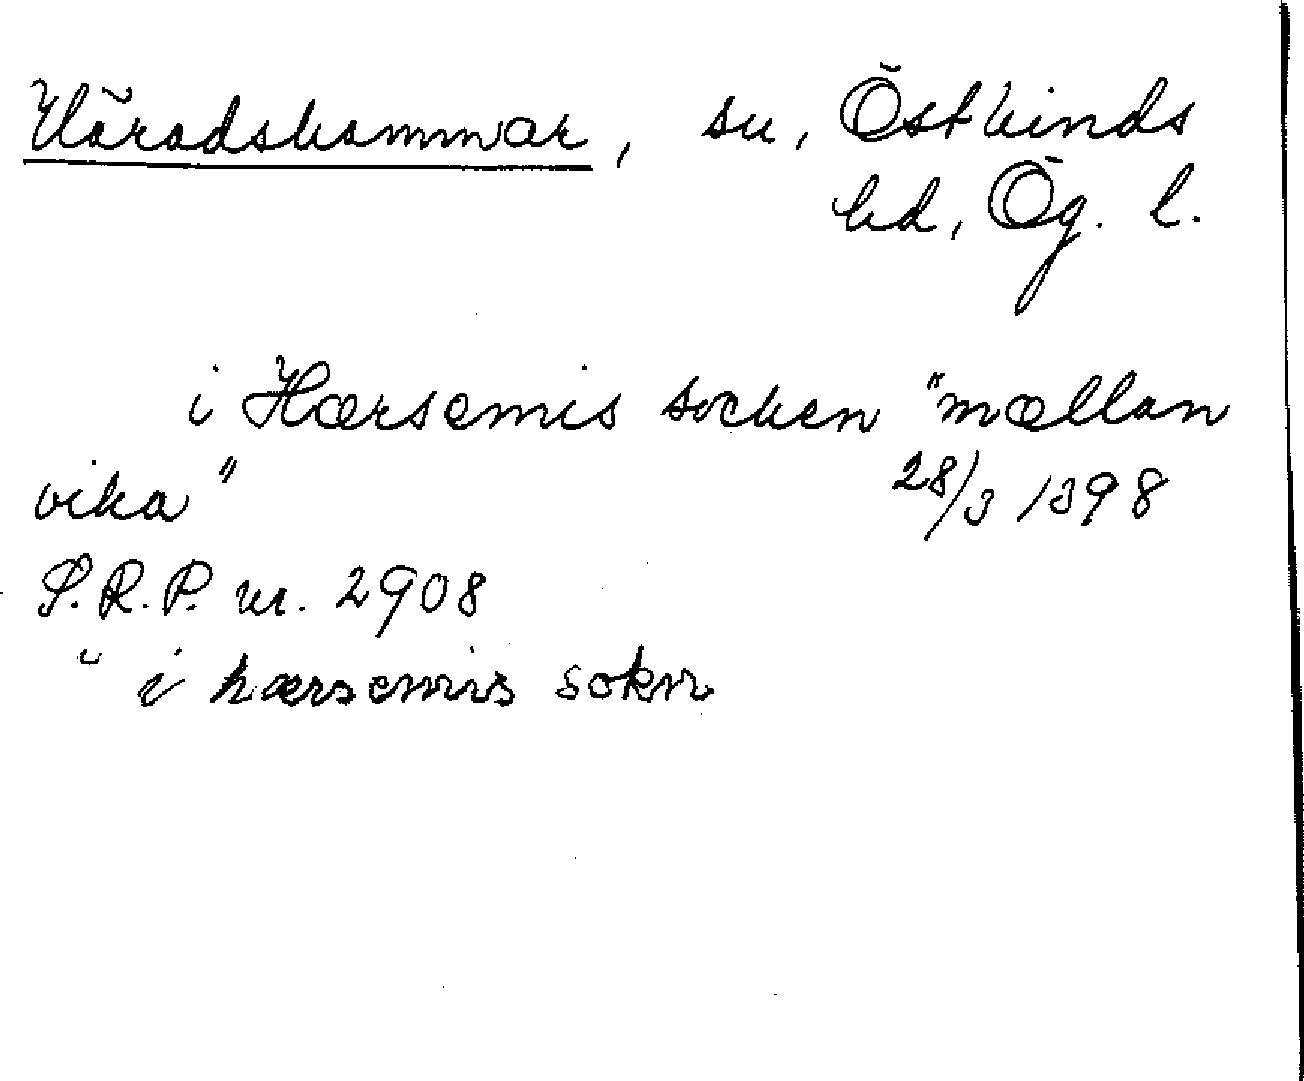 Häradshammar, sn, Östkinds
hd, Ög. l.
i Hærsemis socken "mællan
vika" 28/3 1398
S.R.P. nr. 2908
" i hærsemis sokn